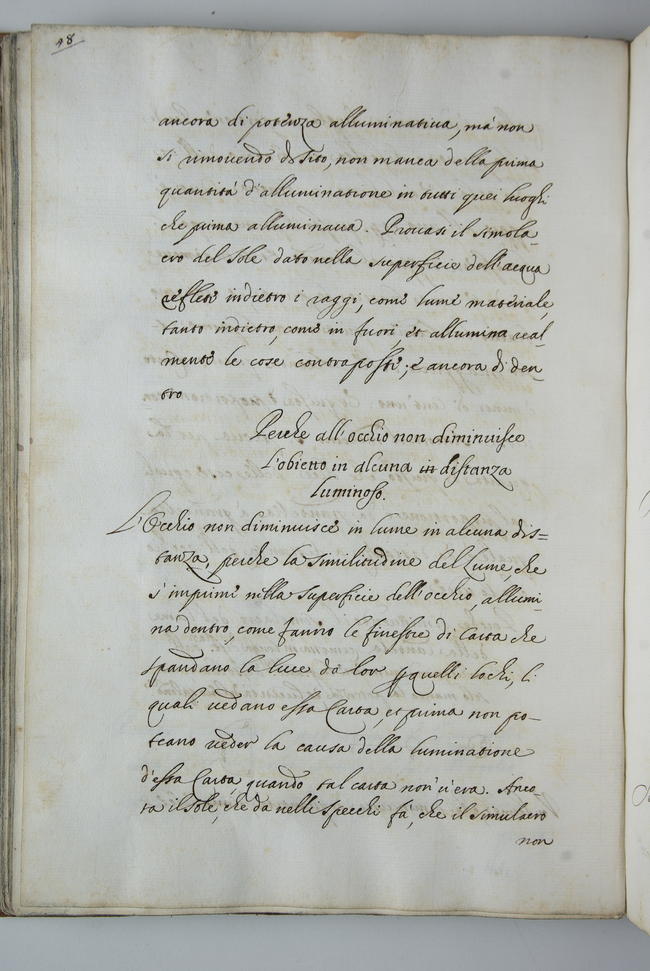 48
ancora di potenza alluminatiua, mà non
si rimouendo di sito, non manca della prima
quantità d'alluminatione in tutti quei luoghi
che prima alluminaua. Prouasi il simola-
cro del Sole dato nella superficie dell'acqua
reflete indietro i raggi, come lume materiale,
tanto indietro, come in fuori, et allumina real-
mente le cose contraposte; e ancora di den-
tro
Perche all'occhio non diminuisce
L'obietto in alcuna in distanza
luminoso.
L'Occhio non diminuisce in lume in alcuna dis=
tanza, perche la similitudine del Lume, che
s'imprime nella superficie dell'occhio, allumi-
na dentro, come fanno le finestre di carta che
spandano la luce da lor ꝑ quelli lochi, li
quali uedano essa Carta, et prima non po-
teano ueder la causa della luminatione
d'essa Carta, quando tal carta non u'era. Anco-
ra il sole, che da nelli specchi fà, che il simulacro
non